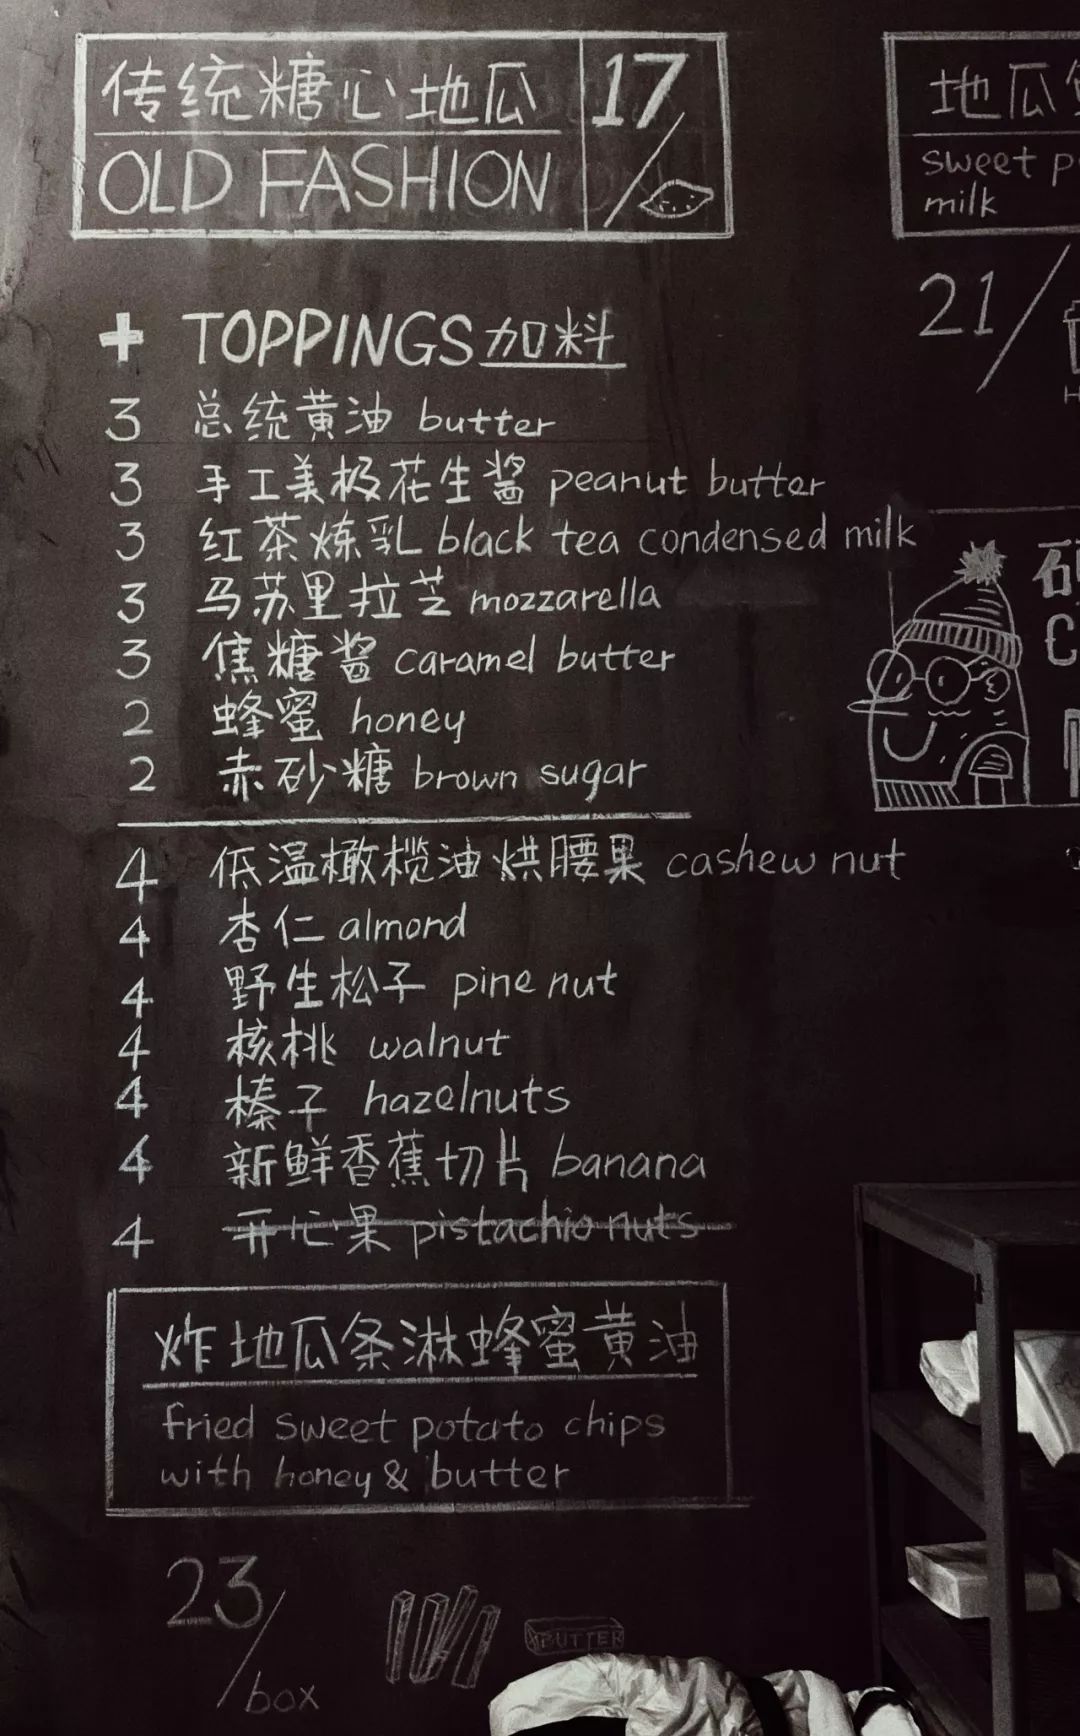 传统糖心地瓜 17/
OLD FASHION
+ TOPPINGS加料
3 总统黄油 butter
3 手工美极花生酱 peanut butter
3 红茶炼乳 black tea condensed milk
3 马苏里拉芝 mozzarella
3 焦糖酱 caramel butter
2 蜂蜜 honey
2 赤砂糖 brown sugar
4 低温橄榄油烘腰果 cashew nut
4 杏仁 almond
4 野生松子 pine nut
4 核桃 walnut
4 榛子 hazelnuts
4 新鲜香蕉切片 banana
4 开心果 pistachio nuts
炸地瓜条淋蜂蜜黄油
fried sweet potato chips
with honey & butter
23/box
BUTTER
地瓜
sweet
milk
21/